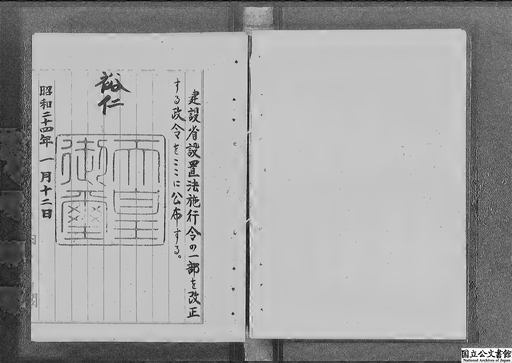 建設省設置法施行令の一部を改正
する政令をここに公布する。
裕仁
天皇
御璽
昭和二十四年一月十二日
国立公文書館
National Archives of Japan